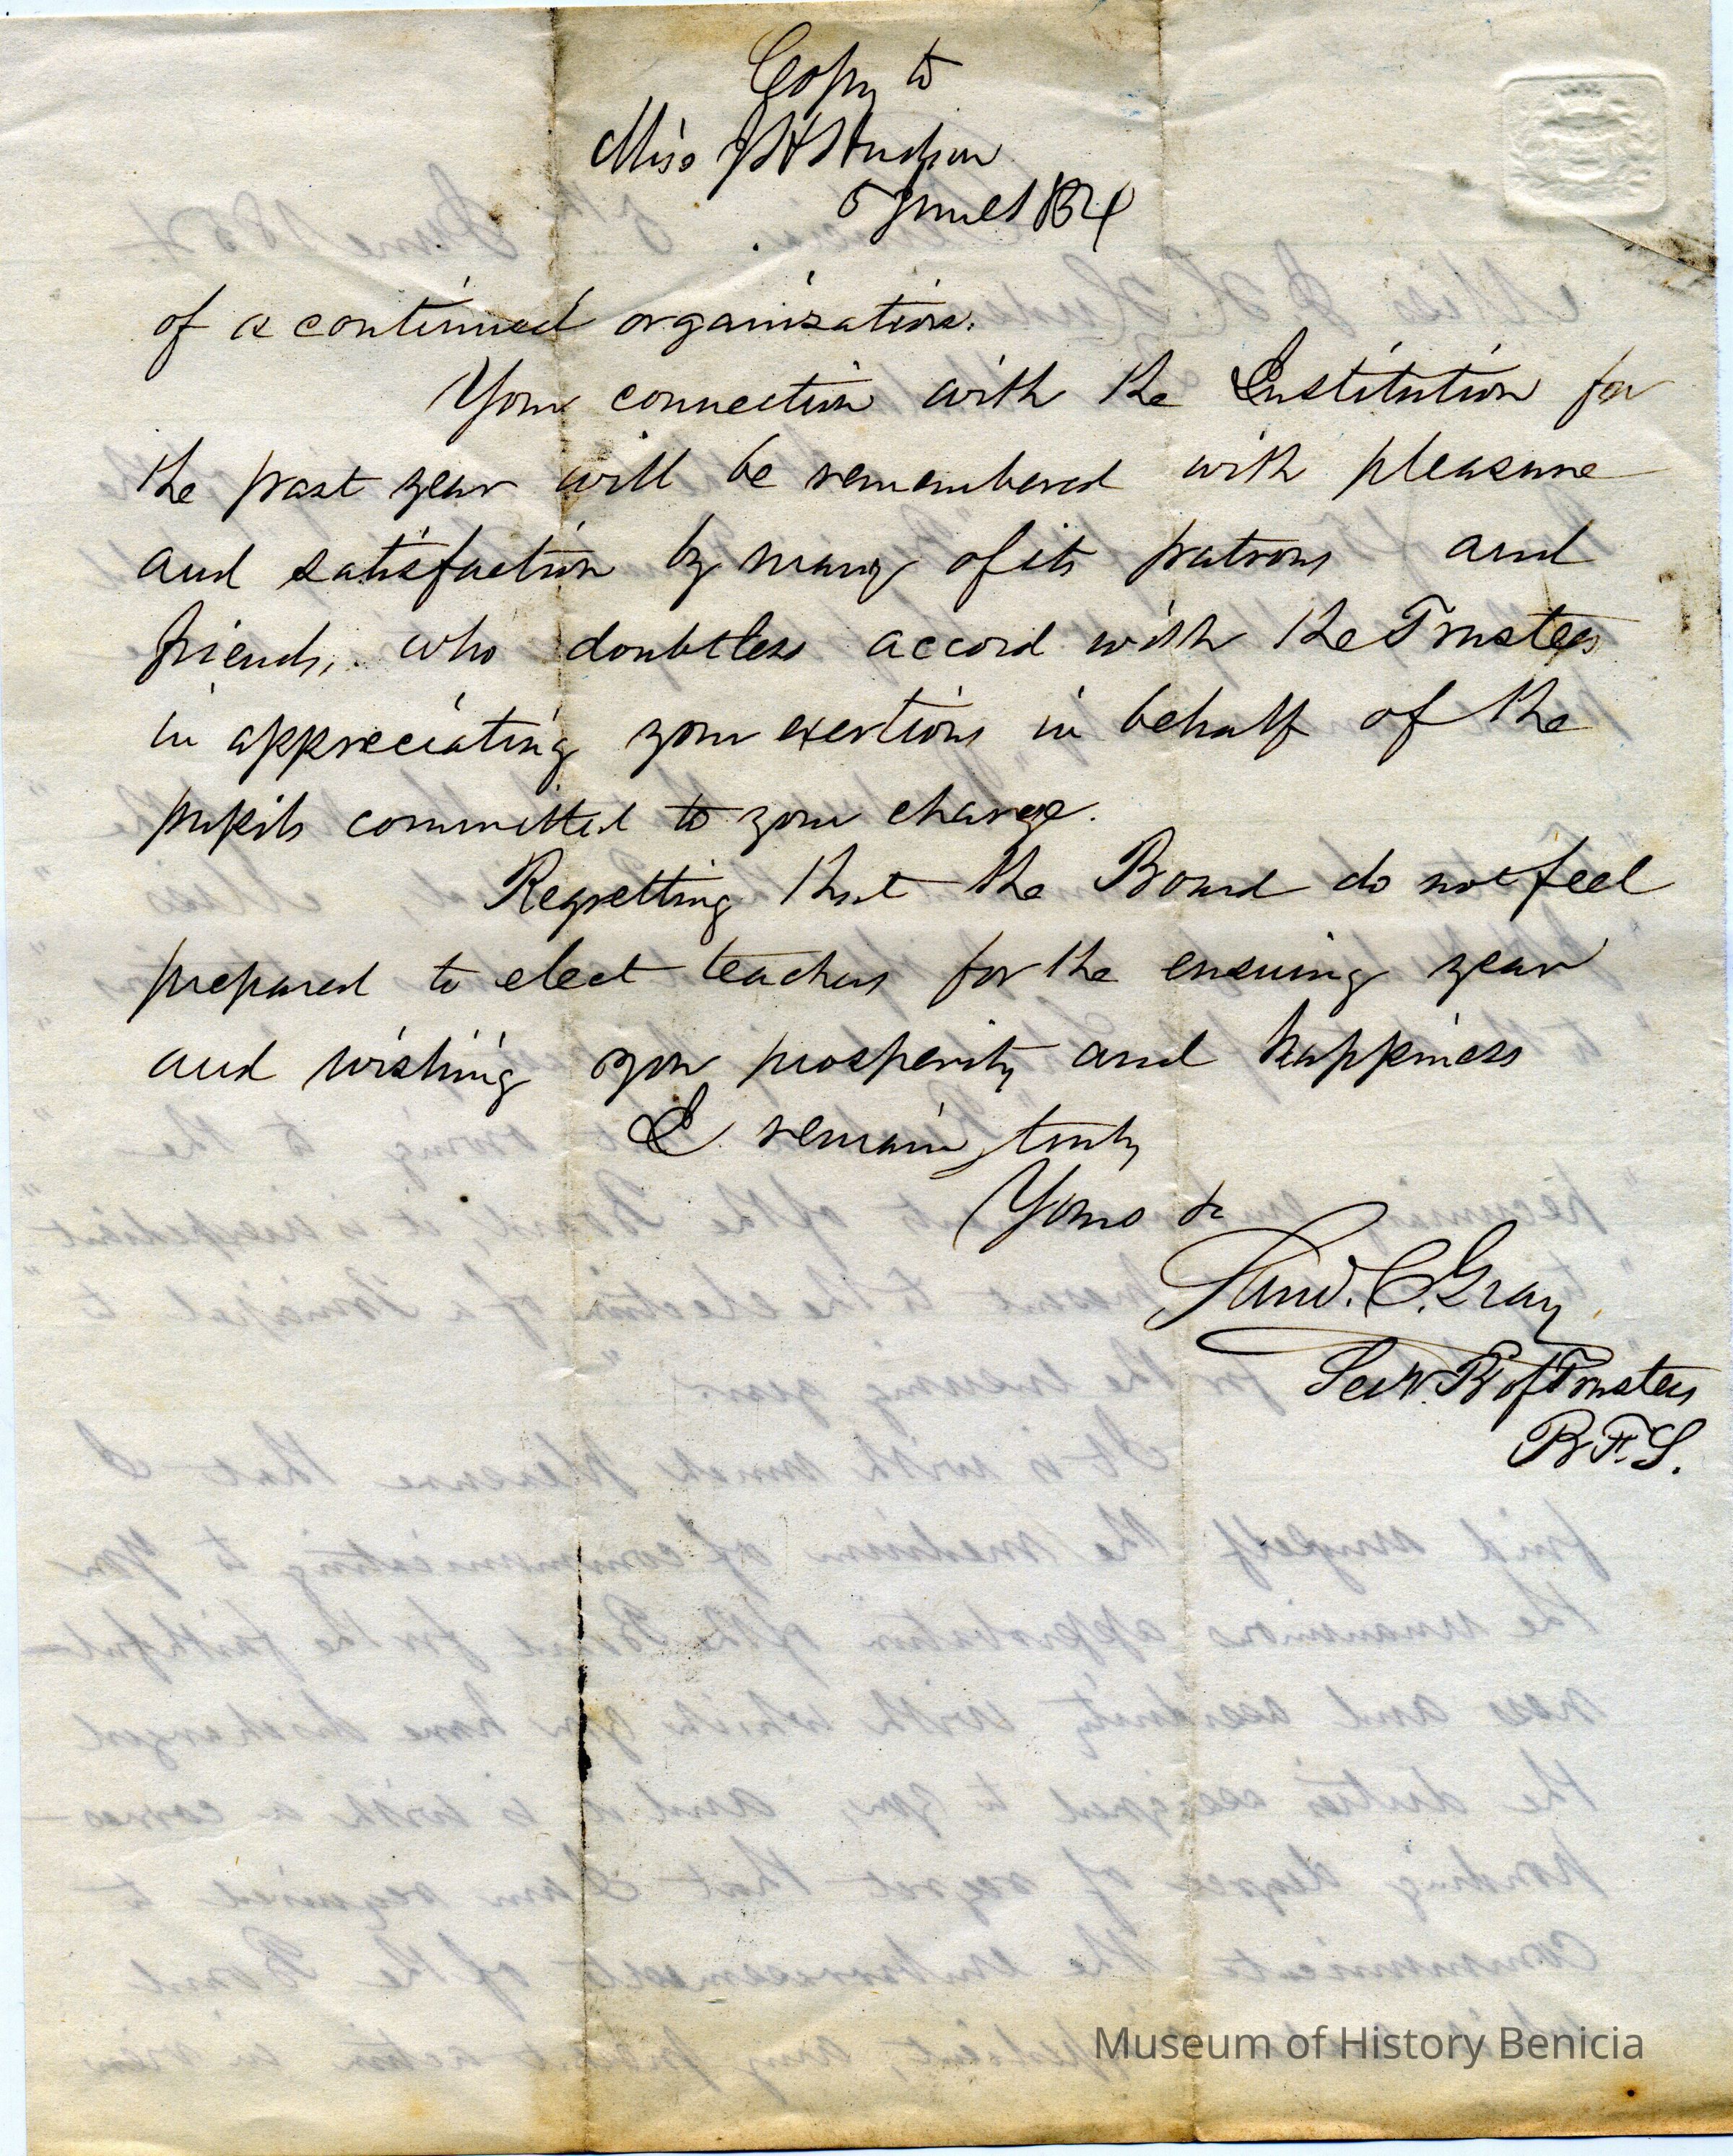 Copy to
Miss J H Hudson
5 June 1854
of a continued organization.
Your connection with the Institution for
the past year will be remembered with pleasure
and satisfaction by many of its patrons and
friends, who doubtless accord with the Trustees
in appreciating your exertions in behalf of the
pupils committed to your charge.
Regretting that the Board do not feel
prepared to elect teachers for the ensuing year
and wishing you prosperity and happiness
I remain truly
Yours &c
C. Gray
Secy. B of Trustees
B.F.S.
Museum of History Benicia